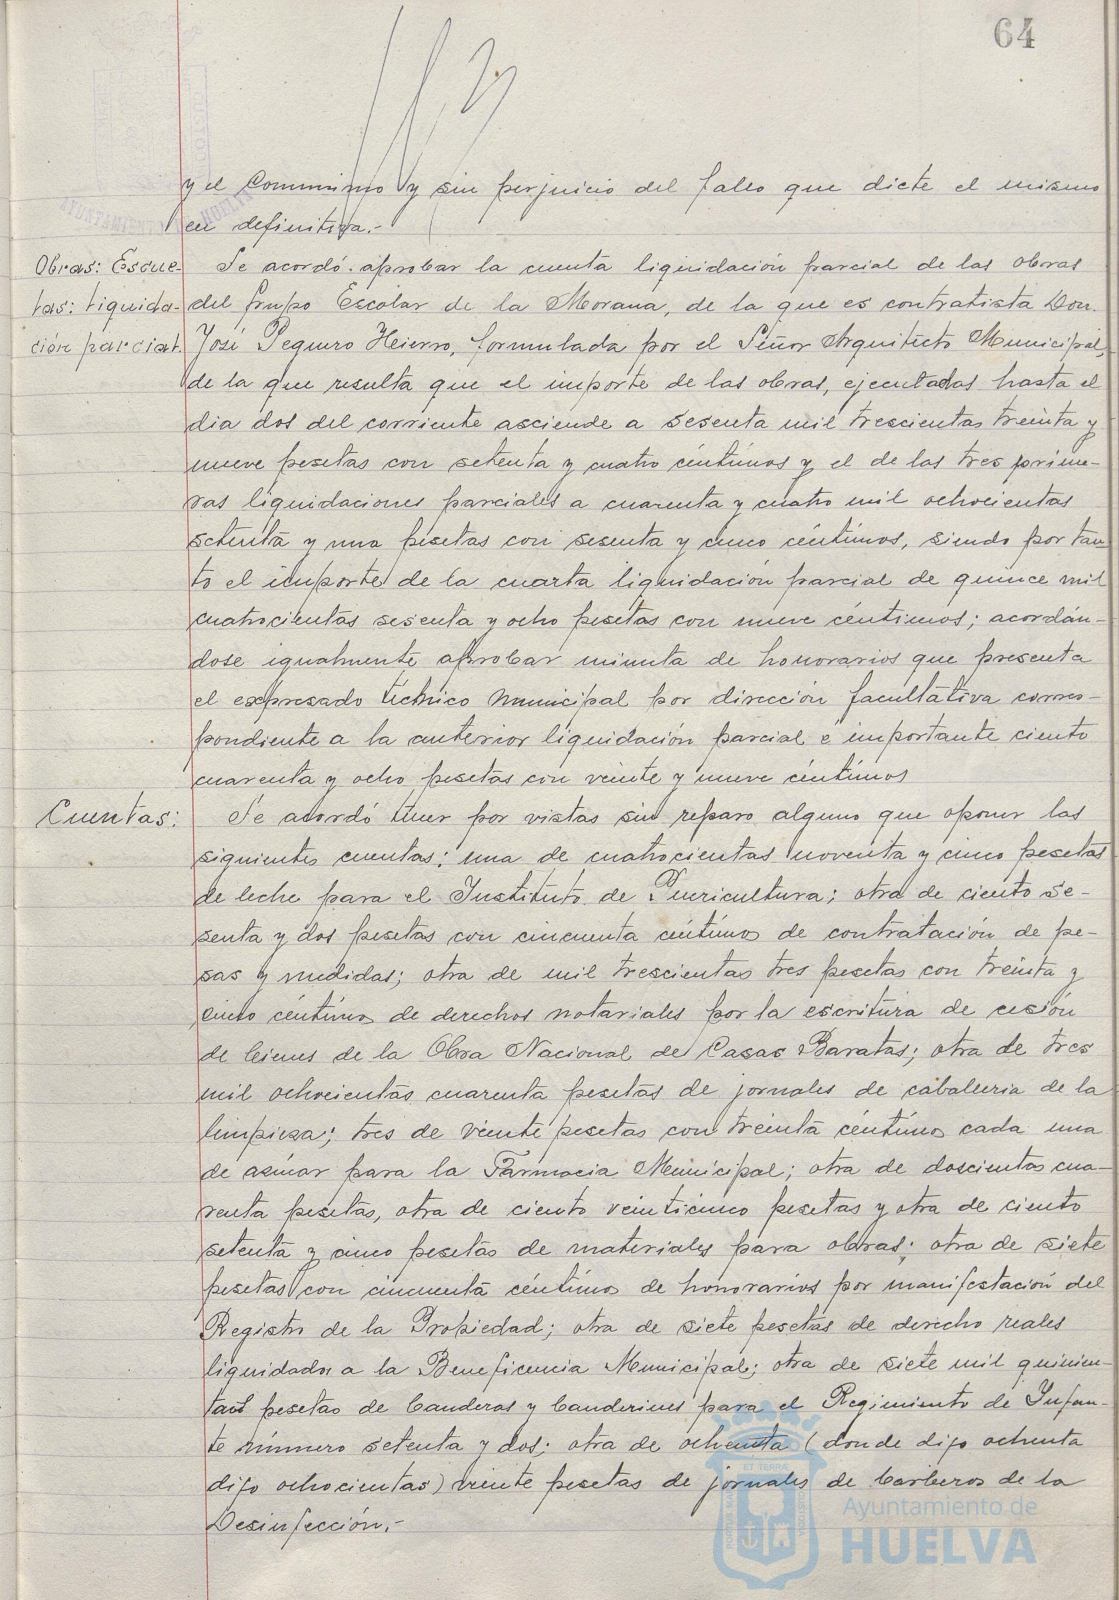 64
AYUNTAMIENTO HUELVA
y el Comunismo y sin perjuicio del fallo que dicte el mismo
en definitiva.-
Obras: Escue-
las: liquida-
ción parcial.
Se acordó aprobar la cuenta liquidación parcial de las obras
del Grupo Escolar de la Morana, de la que es contratista Don
José Peguero Hierro, formulada por el Señor Arquitecto Municipal,
de la que resulta que el importe de las obras, ejecutadas hasta el
dia dos del corriente asciende a sesenta mil trescientas treinta y
nueve pesetas con setenta y cuatro céntimos y el de las tres prime-
ras liquidaciones parciales a cuarenta y cuatro mil ochocientas
setenta y una pesetas con sesenta y cinco céntimos, siendo por tan-
to el importe de la cuarta liquidación parcial de quince mil
cuatrocientas sesenta y ocho pesetas con nueve céntimos; acordán-
dose igualmente aprobar minuta de honorarios que presenta
el expresado técnico municipal por dirección facultativa corres-
pondiente a la anterior liquidación parcial e importante ciento
cuarenta y ocho pesetas con veinte y nueve céntimos
Cuentas:
Se acordó tener por vistas sin reparo alguno que oponer las
siguientes cuentas: una de cuatrocientas noventa y cinco pesetas
de leche para el Instituto de Puericultura; otra de ciento se-
senta y dos pesetas con cincuenta céntimos de contratación de pe-
sas y medidas; otra de mil trescientas tres pesetas con treinta y
cinco céntimos de derechos notariales por la escritura de cesión
de bienes de la Obra Nacional de Casas Baratas; otra de tres
mil ochocientas cuarenta pesetas de jornales de caballeria de la
limpieza; tres de veinte pesetas con treinta céntimos cada una
de azúcar para la Farmacia Municipal; otra de doscientas cua-
renta pesetas, otra de ciento veinticinco pesetas y otra de ciento
setenta y cinco pesetas de materiales para obras; otra de siete
pesetas con cincuenta céntimos de honorarios por manifestación del
Registro de la Propiedad; otra de siete pesetas de derecho reales
liquidados a la Beneficencia Municipal; otra de siete mil quinien-
tas pesetas de banderas y banderines para el Regimiento de Infan-
te número setenta y dos; otra de ochenta (donde dijo ochenta
digo ochocientas) veinte pesetas de jornales de barberos de la
Desinfección.-
Ayuntamiento de
HUELVA